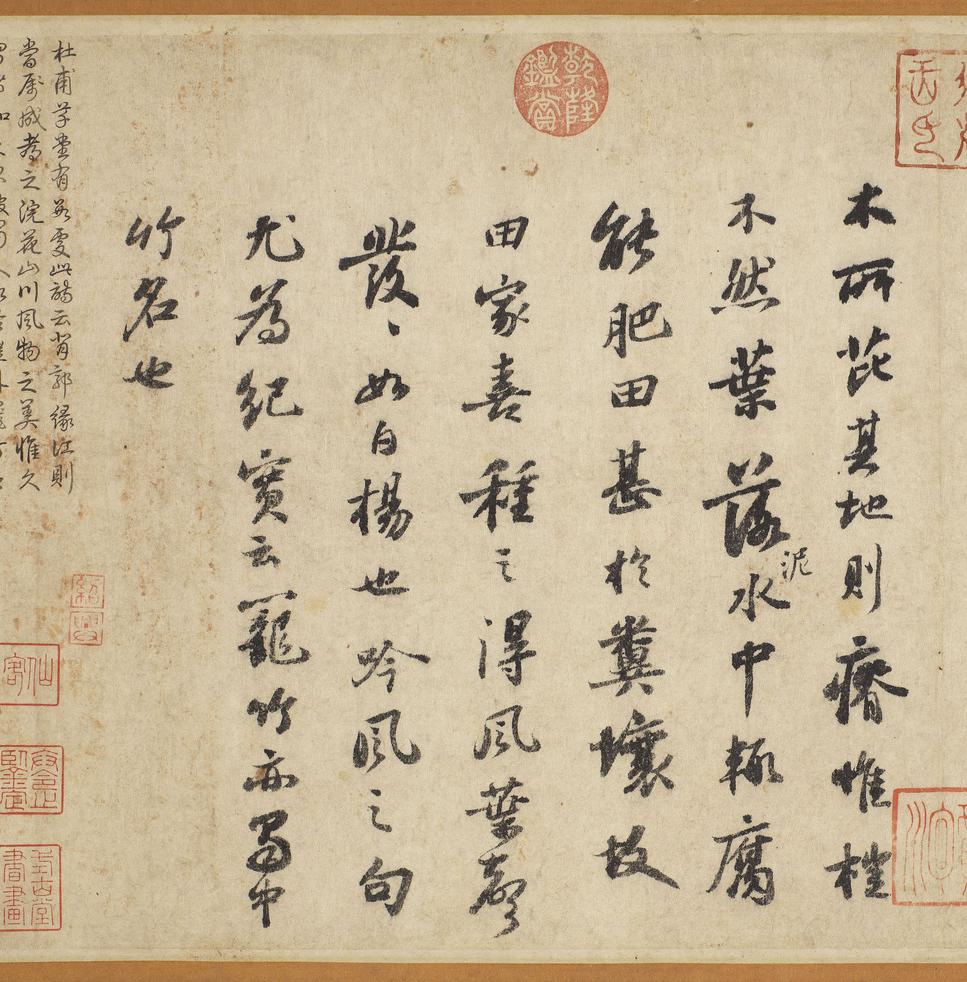 乾隆鑑賞
木所芘其地則瘠惟榿
不然葉落泥水中輒腐
能肥田甚於糞壤故
田家喜種之得風葉聲
發〻如白楊也吟風之句
尤為紀實云籠竹亦蜀中
竹名也
杜甫草堂有數處此詩云背郭緣江則
當屬成都之浣花山川風物之美惟久